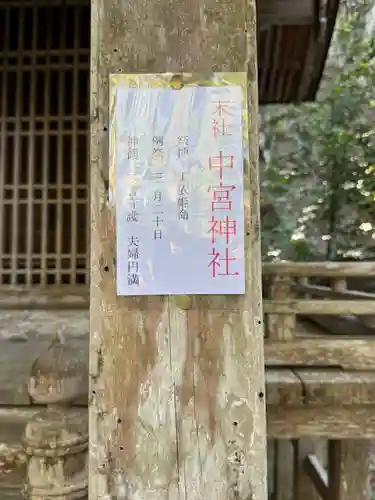 末社 中宮神社
祭神
例祭 三月二十日
夫婦円満